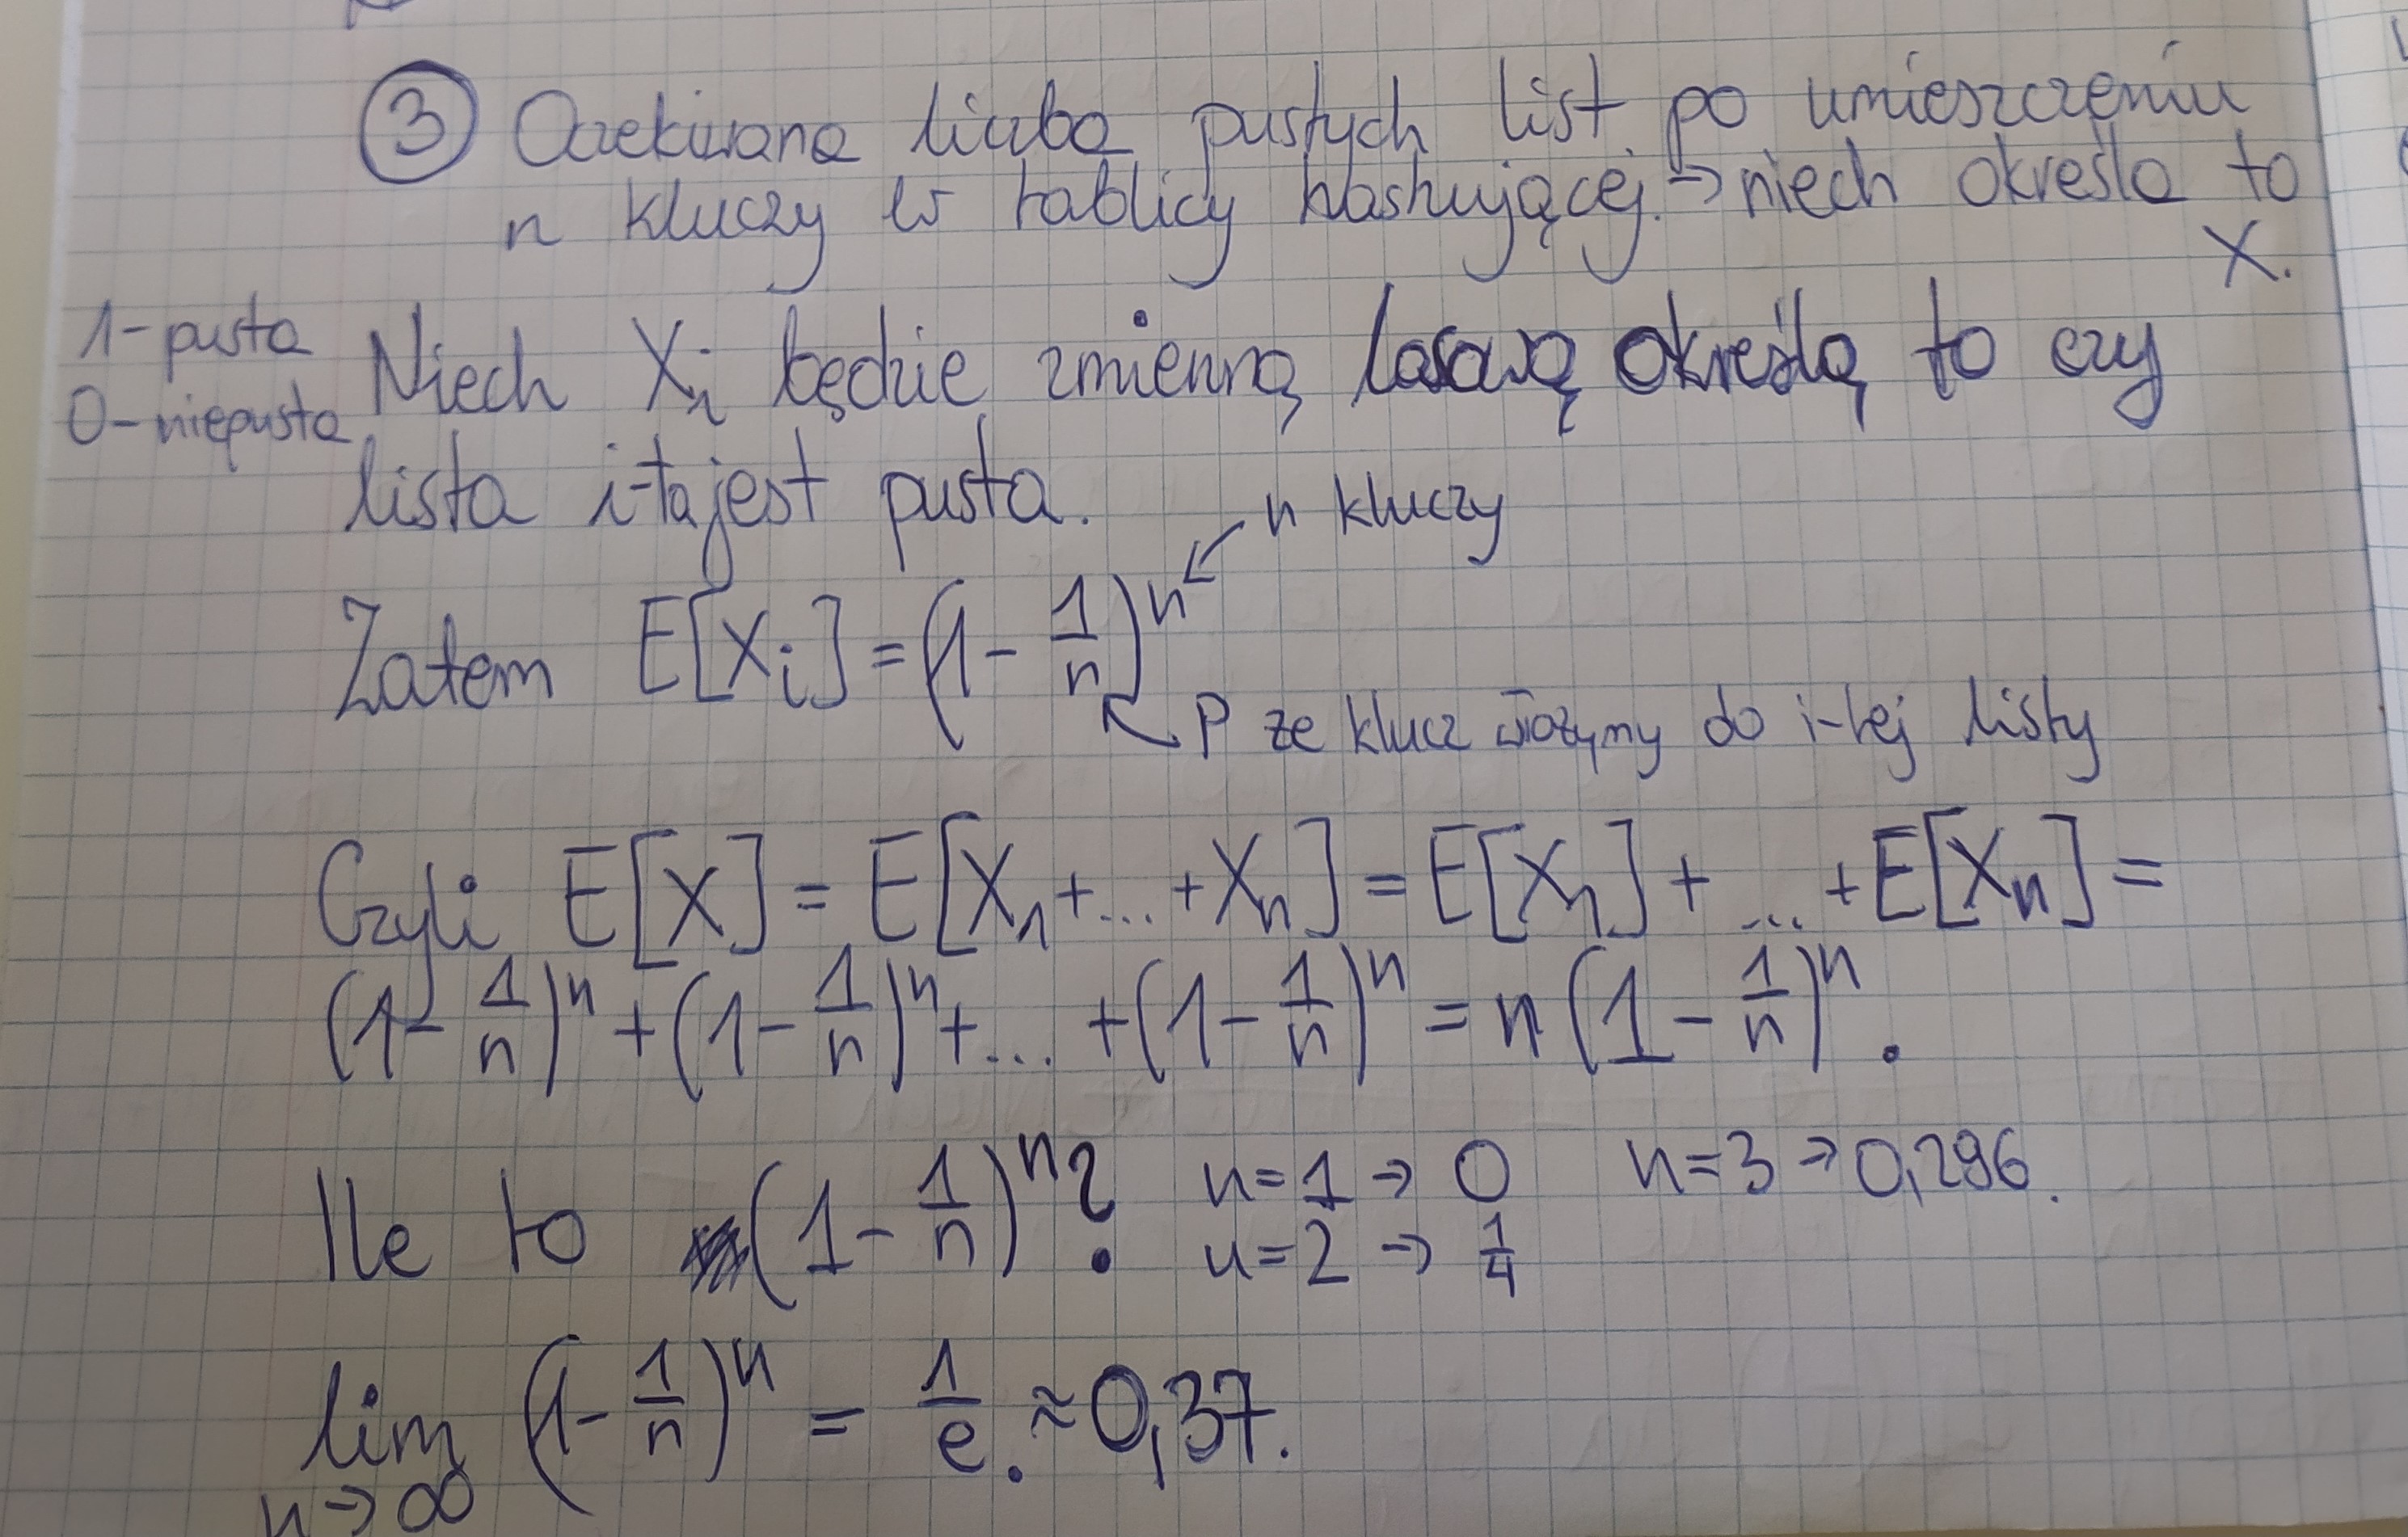 ③ Oczekiwana liczba pustych list po umieszczeniu
n kluczy w tablicy hashującej. → niech określa to
X.
1 - pusta
0 - niepusta
Niech Xi będzie zmienną losową określą to czy
lista i-ta jest pusta.
n kluczy
Zatem E[Xi] = (1 - 1/n)^n
P ze klucz włożymy do i-tej listy
Czyli E[X] = E[X1 + ... + Xn] = E[X1] + ... + E[Xn] =
(1 - 1/n)^n + (1 - 1/n)^n + ... + (1 - 1/n)^n = n(1 - 1/n)^n.
Ile to (1 - 1/n)^n? n=1 → 0 n=3 → 0,296.
n=2 → 1/4
lim n→∞ (1 - 1/n)^n = 1/e. ≈ 0,37.